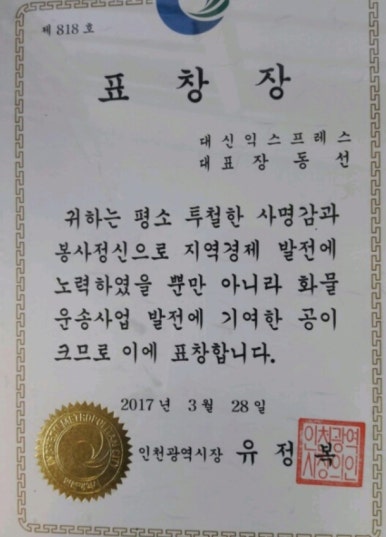 제 818 호
표 창 장
대신익스프레스
대표 장 동 선
귀하는 평소 투철한 사명감과
봉사정신으로 지역경제 발전에
노력하였을 뿐만 아니라 화물
운송사업 발전에 기여한 공이
크므로 이에 표창합니다.
2017 년 3 월 28 일
인천광역시장 유 정 복
인천광역
시장의인